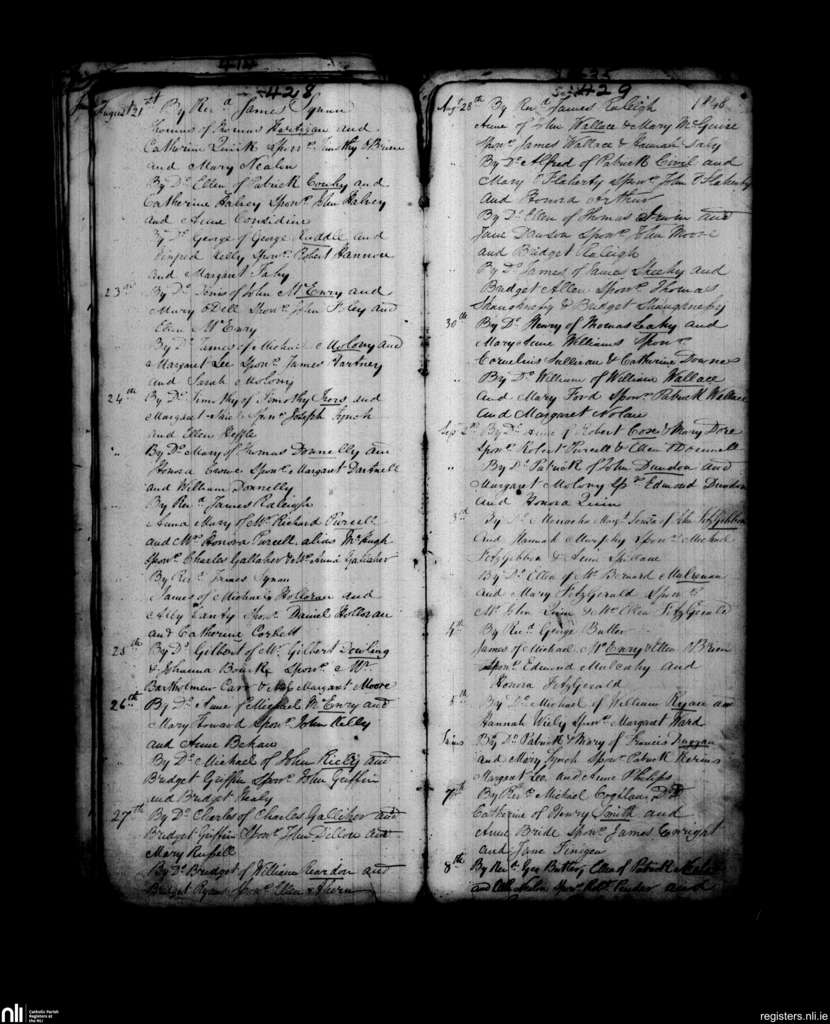 428
August 21st By Revd James Synan
Thomas of Thomas Hartigan and
Catherine Quirk Sponrs Timothy O'Brien
and Mary Nealon
By Do Ellen of Patrick Conhy and
Catherine Halvey Sponrs John Halvey
and Anne Considine
By Do George of George Ruddle and
Winfred Kelly Sponrs Robert Hannon
and Margaret Fahy
23rd By Do Denis of John McEnry and
Mary O'Dell Sponrs John Foley and
Ellen McEnry
By Do James of Michael Molony and
Margaret Lee Sponrs James Hartney
and Sarah Molony
24th By Do Timothy of Timothy and
Margaret Sponrs Joseph Lynch
and Ellen
" By Do Mary of Thomas Donnelly and
Honora Crowe Sponrs Margaret Dartnell
and William Donnelly
" By Revd James Raleigh
Anna Mary of Mr Richard Purcell
and Mrs Honora Purcell alias McHugh
Sponrs Charles Gallaher & Mrs Anna Gallaher
By Revd James Synan
James of Michael Holloran and
Ally Lanty Sponrs Daniel Holloran
and Catherine Corbett
25th By Do Gilbert of Mr Gilbert Dowling
& Johanna Bourke Sponrs Mr
Bartholmew Carr & Margaret Moore
26th By Do Anne of Michael McEnry and
Mary Howard Sponrs John Kelly
and Anne Behan
By Do Michael of John Rieley and
Bridget Griffin Sponrs John Griffin
and Bridget Healy
27th By Do Charles of Charles Gallihor and
Bridget Griffin Sponrs John Dillon and
Mary Russell
By Do Bridget of William Reardon and
Bridget Ryan Sponrs Ellen Ahern
429
Augt 28th By Revd James Raleigh 1848
Anne of John Wallace & Mary McGuire
Sponrs James Wallace & Hannah Daly
" By Do Alfred of Patrick Civil and
Mary O'Flaherty Sponrs John O'Flaherty
and Honora Arthur
By Do Ellen of Thomas Irwin and
Jane Dawson Sponrs John Moore
and Bridget Raleigh
By Do James of James Sheehy and
Bridget Allen Sponrs Thomas
Shaughnessy & Bridget Shaughnessy
30th By Do Henry of Thomas Leahy and
Mary Anne Williams Sponrs
Cornelius Sullivan & Catherine Downes
" By Do William of William Wallace
and Mary Ford Sponrs Patrick Wallace
and Margaret Nolan
Sept 2nd By Do Anne of Robert Cox & Mary Dore
Sponrs Robert Purcell & Ellen O'Donnell
" By Do Patrick of John Dundon and
Margaret Molony Sprs Edmond Dundon
and Honora Quin
3rd By Do of John Fitzgibbon
and Hannah Murphy Sponrs Michael
Fitzgibbon & Ann
By Do Ellen of Mr Bernard Mulrenan
and Mary Fitzgerald Sponrs
Mr John Quin & Mrs Ellen Fitzgerald
4th By Revd George Butler
James of Michael McEnry & Ellen O'Brien
Sponrs Edmond Mulcahy and
Honora Fitzgerald
5th By Do Michael of William Ryan and
Hannah Wiely Sponrs Margaret Ward
Twins By Do Patrick & Mary of Francis Duggan
and Mary Lynch Sponrs Patrick Kerins
Margaret Lee and Anne Philips
7th By Revd Michael Coghlan
Catherine of Henry Smith and
Anne Bride Sponrs James Enright
and Jane Finigan
8th By Revd Geo Butler, Ellen of Patrick
and Sponrs Robt and
nli
Catholic Parish
Registers at
the NLI
registers.nli.ie